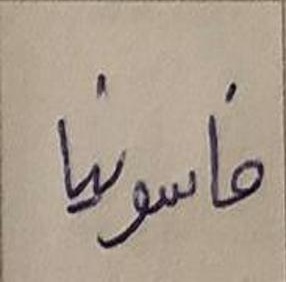 فاسونيا